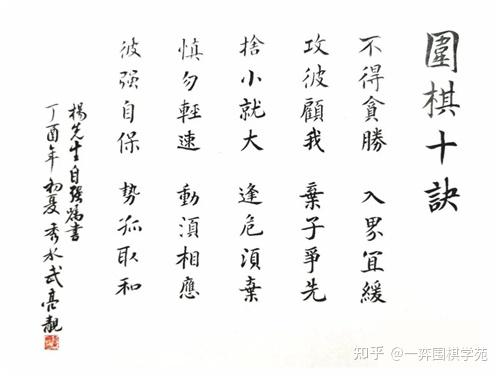 圍棋十訣
不得貪勝 入界宜緩
攻彼顧我 棄子爭先
捨小就大 逢危須棄
慎勿輕速 動須相應
彼强自保 勢孤取和
楊先生自强為書
丁酉年初夏 秀水武亮靚
知乎 @一弈围棋学苑